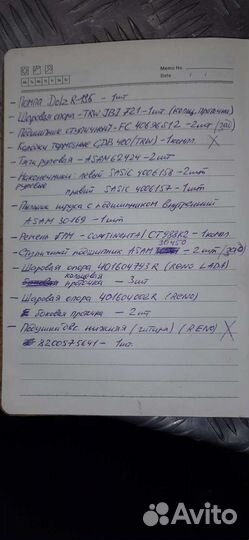 Memo No.
Date / /
- Помпа Dolz R-196 - 1шт
- Шаровая опора - TRW JBJ 721 - 1шт (кольц. проточка)
- Подшипник ступичный - FC 40696S12 - 2шт /зад/
- Колодки тормозные GDB 400/TRW) - 1компл. X
- Тяги рулевая - ASAM 62924 - 2шт
- Наконечники левый SASIC 4006158 - 2шт
рулевые правый SASIC 4006157 - 1шт
- Пыльник шруса с подшипником внутренний
ASAM 30169 - 1шт
- Ремень ГРМ - CONTINENTAL CT988K2 - 1компл
30450
- Ступичный подшипник ASAM - 2шт /зад)
- Шаровая опора 401604793R (RENO LADA)
кольцевая
проточка - 3шт
- Шаровая опора 401604002R (RENO)
боковая проточка - 2шт
- Подушки двс нижняя /гитара/ (RENO) X
8200575641 - 1шт.
Avito